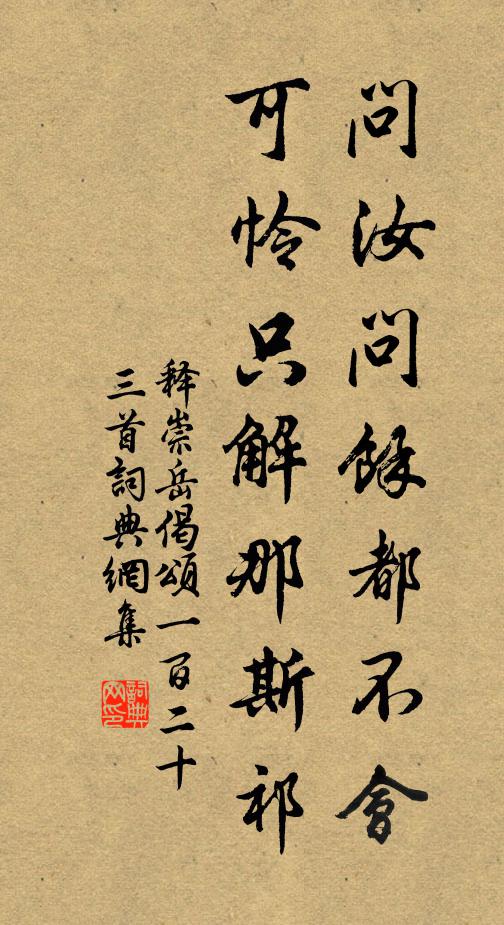 問汝問餘都不會
可怜只解那斯祁
释崇岳偈頌一百二十
三首詞典網集
詞典网印